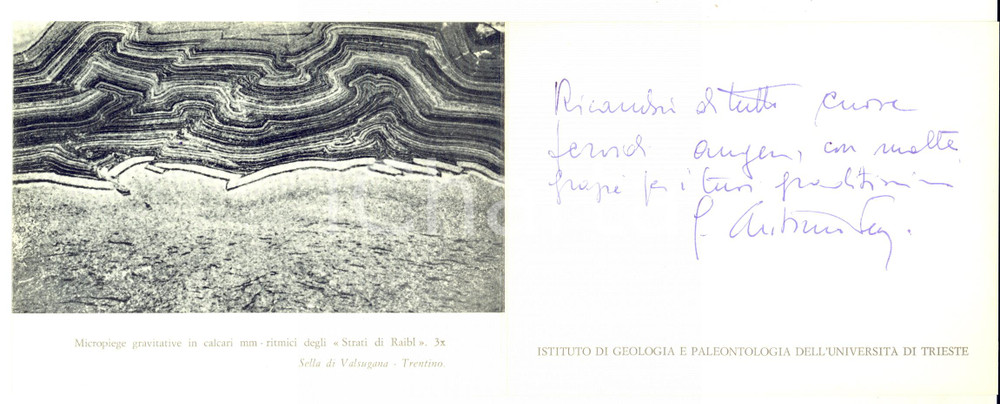 Micropiege gravitative in calcari mm - ritmici degli « Strati di Raibl ». 3x
Sella di Valsugana - Trentino.
Ricambio di tutto cuore
fervidi auguri, con molte
grazie per i tuoi graditissimi
ISTITUTO DI GEOLOGIA E PALEONTOLOGIA DELL'UNIVERSITÀ DI TRIESTE